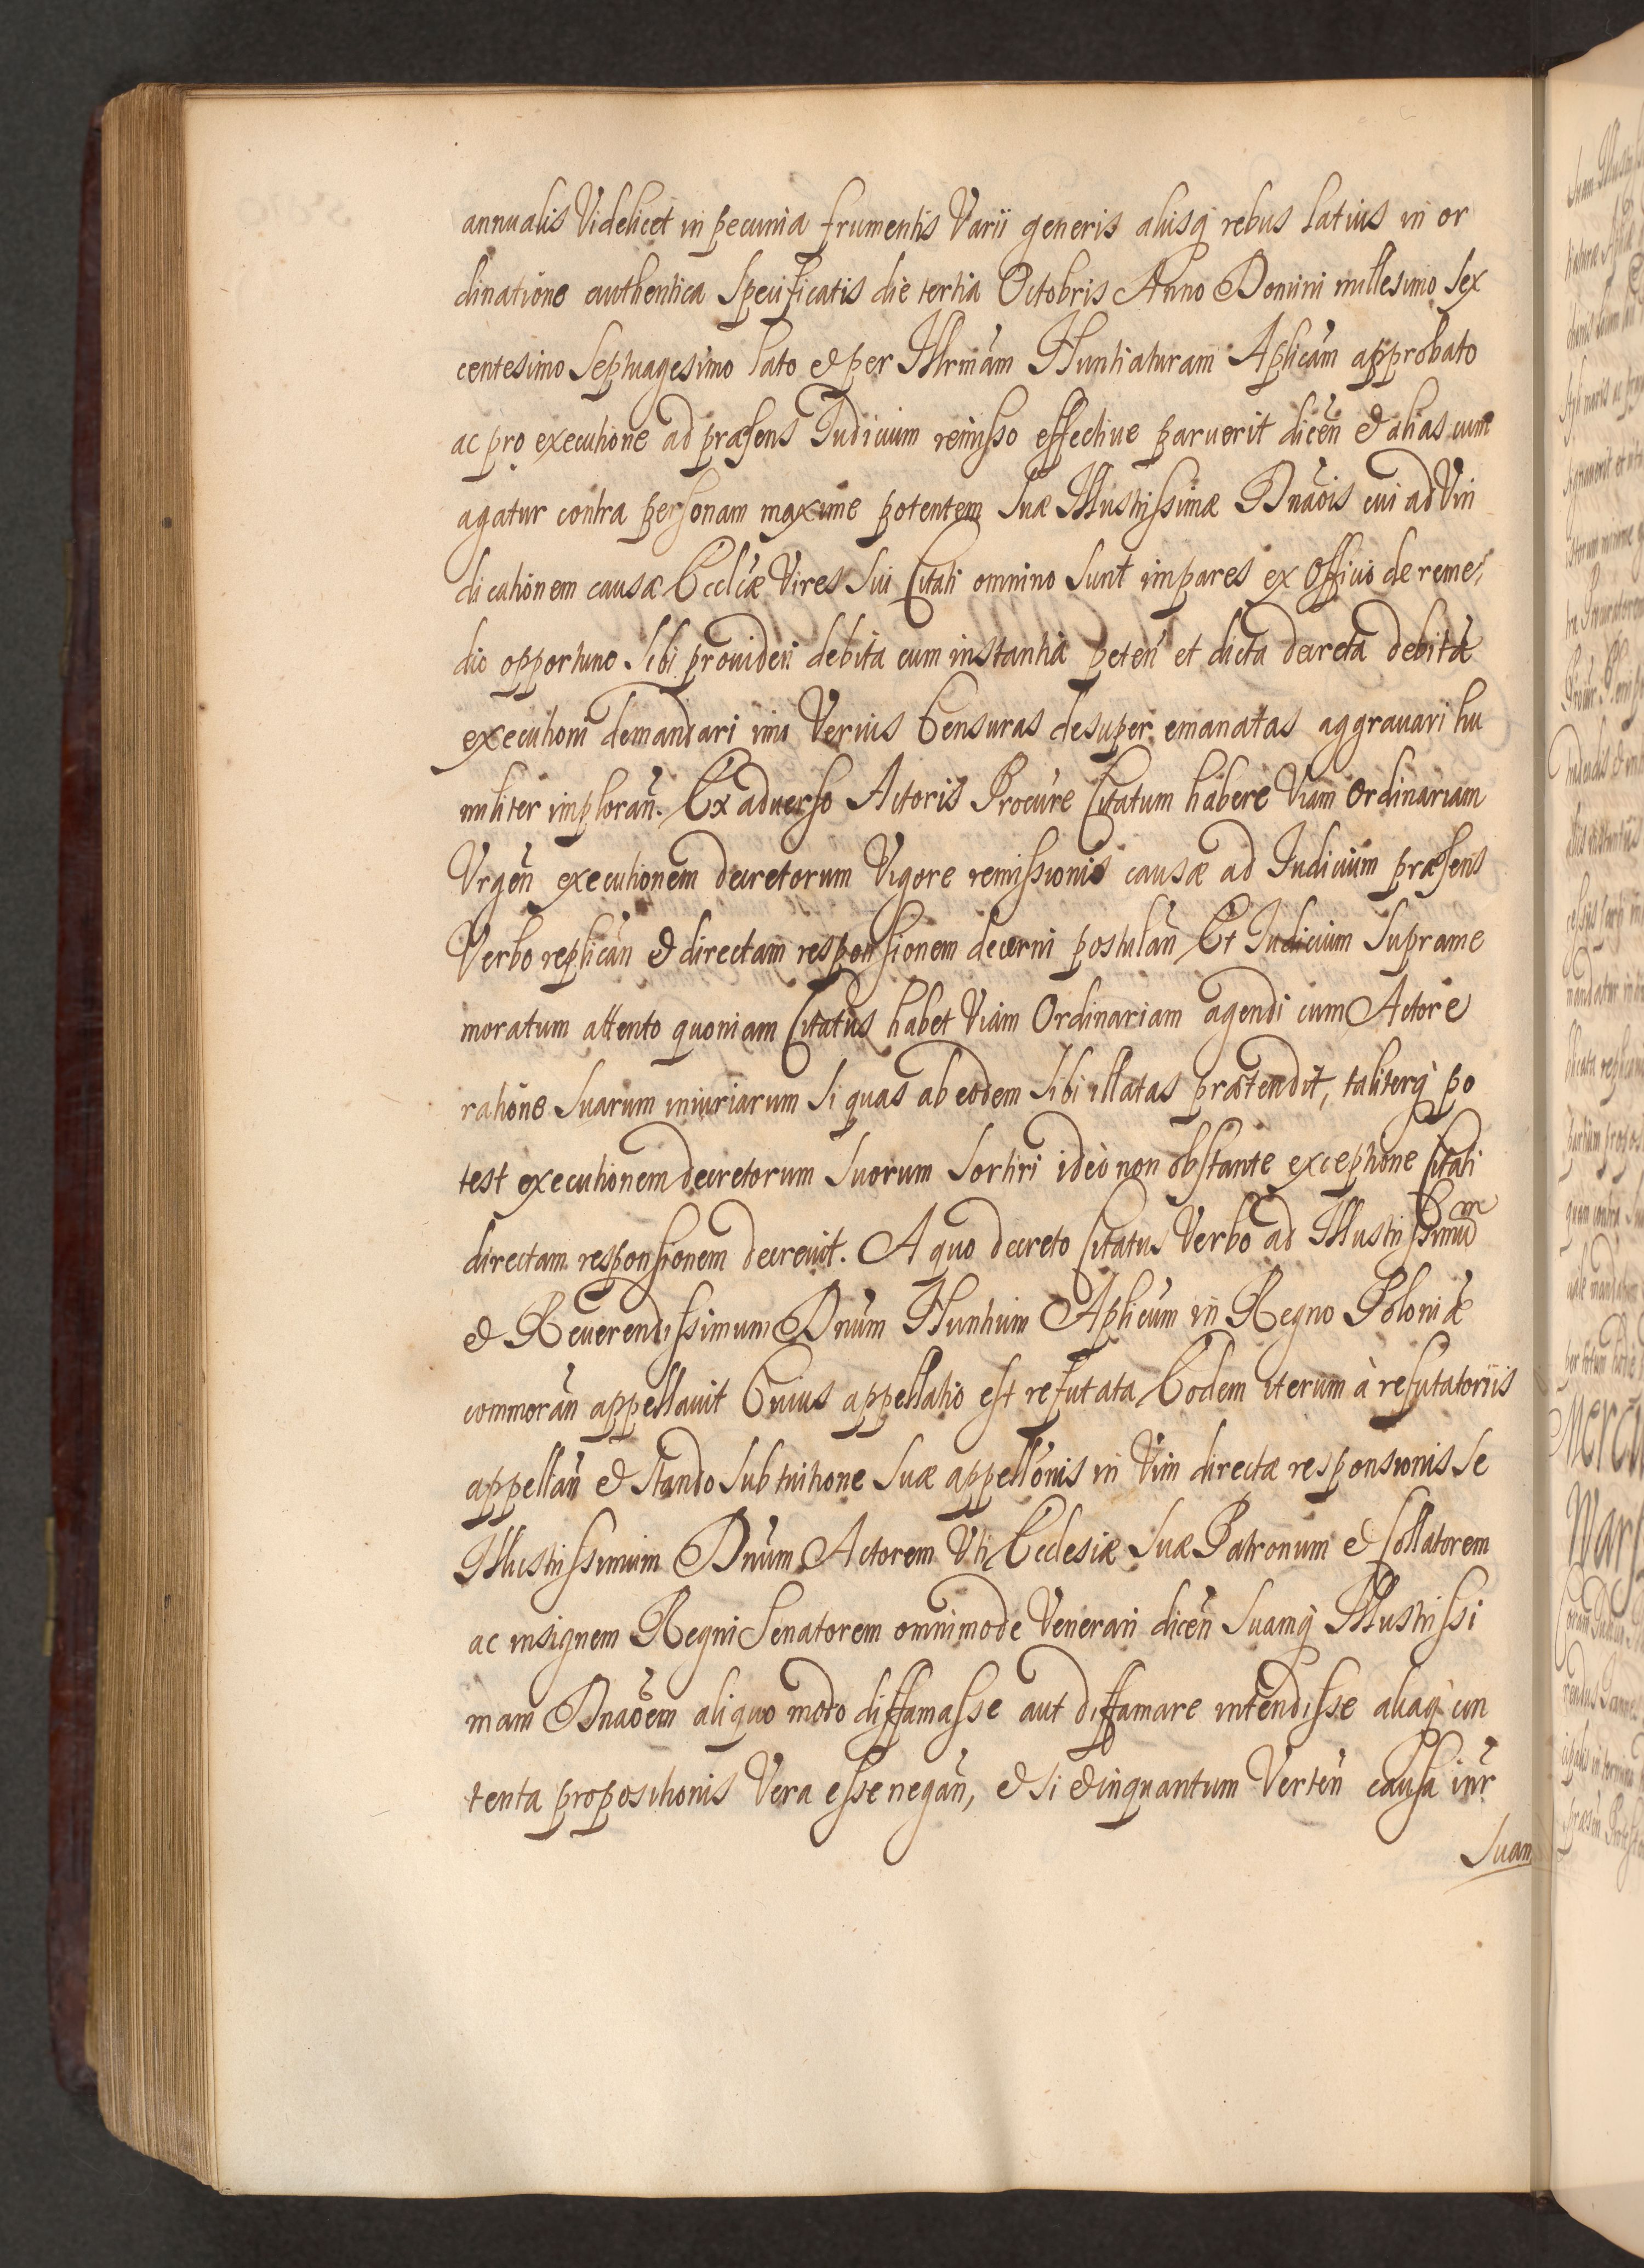 annualis Videlicet in pecunia frumentis Varii generis aliisq́ rebus latius in or
dinatione authentica Specificatis die tertia Octobris Anno Domini millesimo Sex
centesimo Septuagesimo lato et per Illrmam Nuntiaturam Aplicam approbato
ac pro executione ad præsens Iudicium remisso effective paruerit dicen̄ et alias cum
agatur contra personam maxime potentem Suæ Illustrissimæ Dnãois cui ad Vin
dicationem causæ Ecclæ Vires Sui Citati omnino Sunt impares ex Officio de reme,
dio opportuno Sibi prouideri debita cum instantia peten̄ et dicta decreta debitæ
executioni demandari imo Verius Censuras desuper emanatas aggrauari hu
militer imploran̄. Ex aduerso Actoris Procure Citatum habere Viam Ordinariam
Vrgen̄ executionem decretorum Vigore remissionis causæ ad Iudicium præsens
Verbo replican̄ et directam responsionem decerni postulan̄ Et Iudicium Supramе
moratum attento quoniam Citatus habet Viam Ordinariam agendi cum Actore
ratione Suarum iniuriarum Si quas ab eodem Sibi illatas prætendit, taliterq́ po
test executionem decretorum Suorum Sortiri ideo non obstante exceptione Citati
directam responsionem decreuit. A quo decreto Citatus Verbo ad Illustrissimũ
et Reuerendissimum Dnum Nuntium Aplicum in Regno Poloniæ
commoran̄ appellauit Cuius appellatio est refutata Eodem iterum à refutatoriis
appellan̄ et Stando Sub tuitione Suæ appellonis in Vim directæ responsionis Se
Illustrissimum Dnum Actorem Vti Ecclesiæ Suæ Patronum et Collatorem
ac insignem Regni Senatorem omnimode Venerari dicen̄ Suamq́ Illustrissi
mam Dnãoem aliquo modo diffamasse aut diffamare intendisse aliaq́ con
tenta propositionis Vera esse negan̄, et Si et inquantum Verten̄ causa inr̄
Suam